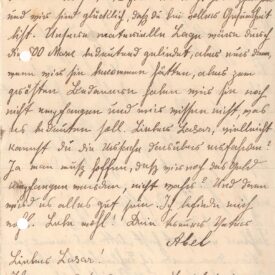 und wir sein glücklich, daß du bei voller Gesundheit
bist. Unsere materielle Lage würde durch
die 500 Mark bedeutend gelindert, aber nur dann
wenn wir sie bekommen hätten, aber zum
größten Bedauern haben wir sie noch
nicht empfangen und wir wissen nicht, was
es bedeuten soll. Lieber Lasar, vielleicht
kannst du die Ursache darüber erfahren?
Ja man muß hoffen, daß wir noch das Geld
empfangen werden, nicht wahr? Und dann
wird es alles gut sein. Ich befinde mich
wohl. Lebe wohl! Dein treuer Vater
Abel
Lieber Lasar!